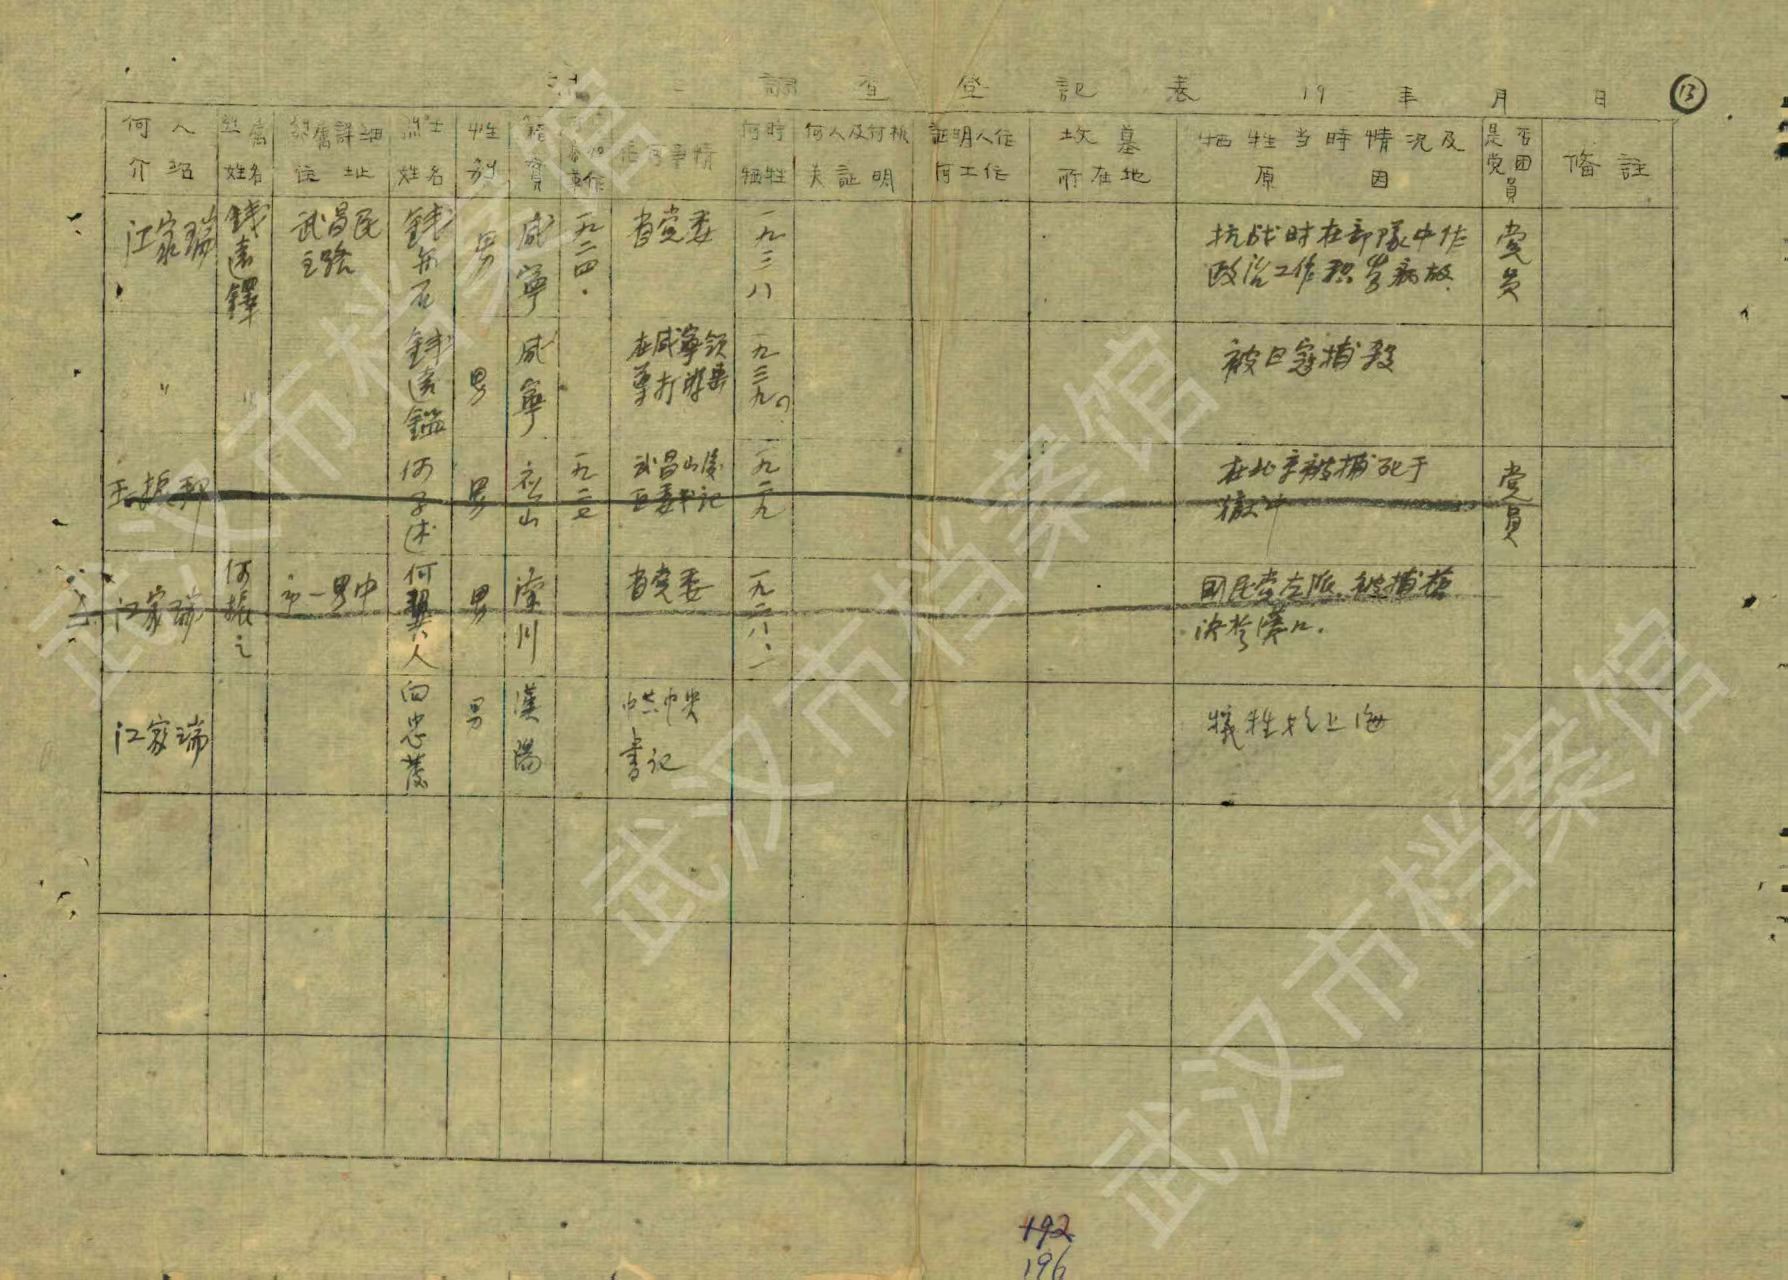 調查登記表 19 年 月 日 13
何人介紹
姓名
詳細住址
烈士姓名
性別
籍貫
何時犧牲
何人及何机关証明
証明人任何工作
坟墓所在地
牺牲当時情况及原因
是否党团員
俻註
江家瑞
錢遠鐸
武昌民主路
錢亦石
男
咸寧
一九二四.
省党委
一九三八
抗战时在部隊中作
政治工作积劳病故.
党员
〃
〃
錢遠鑑
男
咸寧
在咸寧領
導打游擊
一九三九
被日寇捕殺
王振邦
何子述
男
松山
一九二七
武昌山後
区委书记
一九二九
在北京被捕死于
獄中
党員
江家瑞
何振之
市一男中
何翼人
男
漢川
省党委
一九二八.一
国民党左派.被捕槍
决於漢口.
江家瑞
向忠發
男
漢陽
中共中央
書记
犧牲於上海
192
196
武汉市档案馆
武汉市档案馆
武汉市档案馆